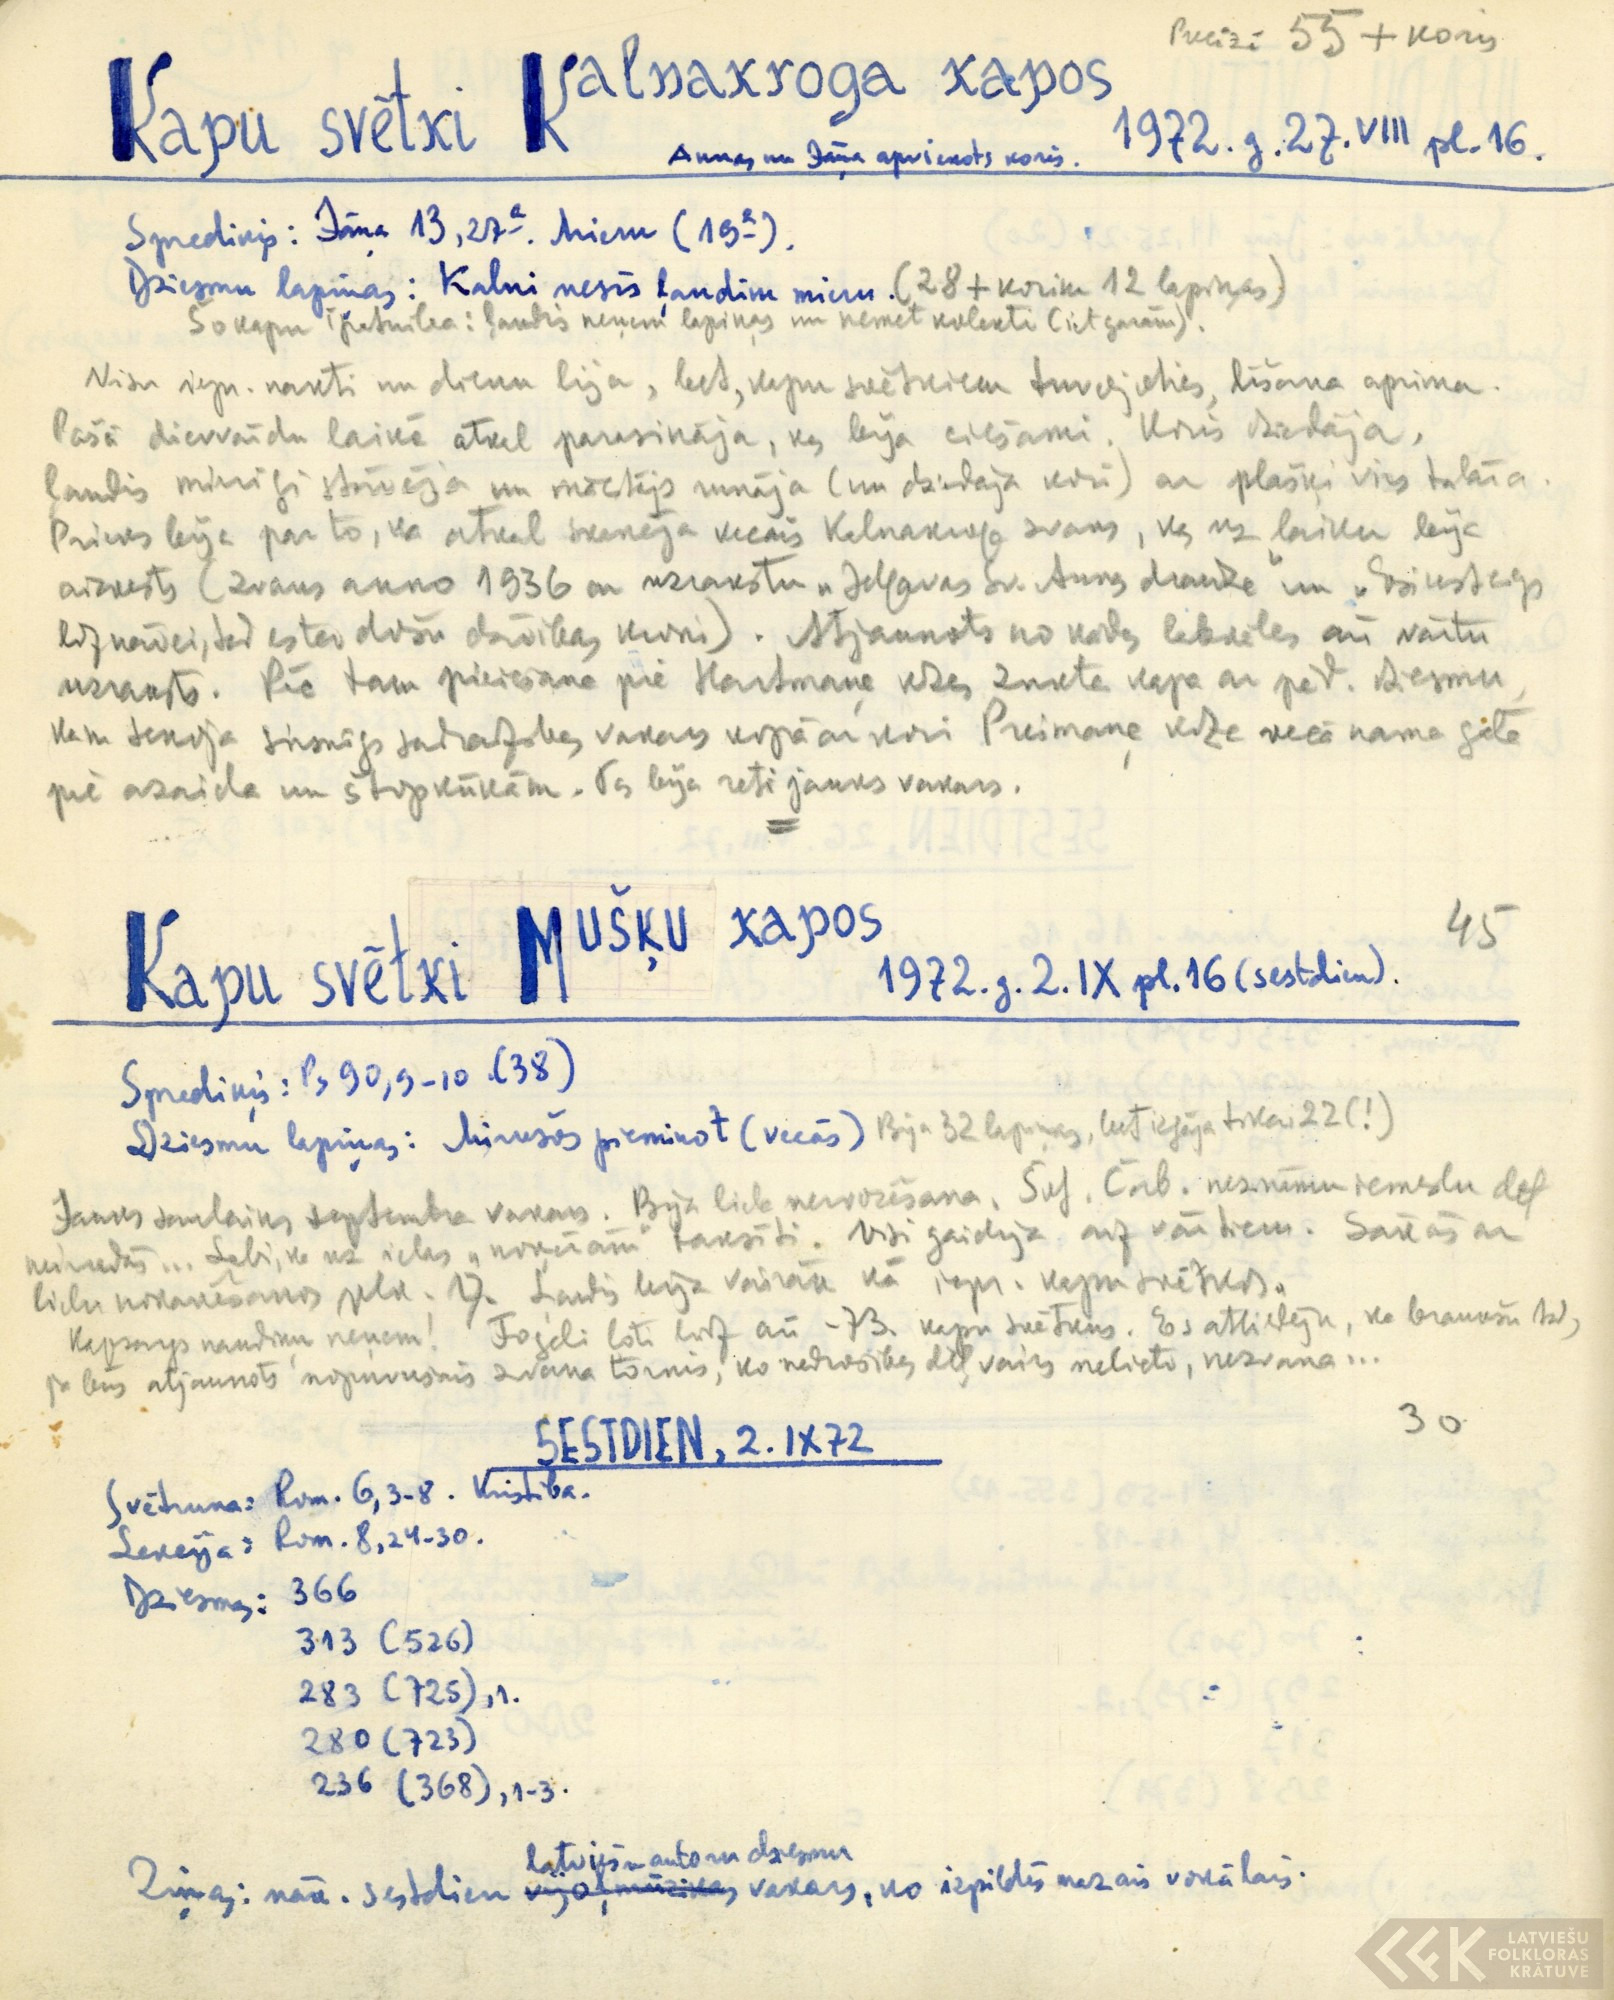 Precīzi 55 + koris
Kapu svētki Kalnakroga kapos
Annas un Jāņa apvienots koris. 1972. g. 27. VIII pl. 16.
Sprediķis: Jāņa 13, 27ª. Mieru (19ª).
Dziesmu lapiņas: Kalni nesīs ļaudīm mieru. (28 + korim 12 lapiņas)
Šo kapu īpatnība: ļaudis neņem lapiņas un nemet kolekti (iet garām).
Visu iepr. nakti un dienu lija, bet, kapu svētkiem tuvojoties, līšana aprima.
Pašā dievvārdu laikā atkal parasināja, kas bija ciešami. Koris dziedāja,
ļaudis mierīgi stāvēja un mācītājs runāja (un dziedāja korī) ar plašķi virs talāra.
Prieks bija par to, ka atkal skanēja vecais Kalnakroga zvans, kas uz laiku bija
aizvests (zvans anno 1936 ar uzrakstu „Jelgavas Sv. Annas draudze" un „Esi uzticīgs
līdz nāvei, tad es tev došu dzīvības kroni). Atjaunots no koka lekšēles arī vārtu
uzraksts. Pēc tam pieiešana pie Hartmaņa kdzes znota kapa ar pēd. dziesmu,
kam sekoja sirsnīgs sadraudzības vakars kopā ar kori Preimaņa kdze vecā nama gātē
pie azaida un štopkūkām. Tas bija reti jauks vakars.
Kapu svētki Mušķu kapos 45
1972. g. 2. IX pl. 16 (sestdien).
Sprediķis: Ps 90, 9-10. (38)
Dziesmu lapiņas: Mirušos pieminot (vecās) Bija 32 lapiņas, bet izgāja tikai 22 (!)
Jauks saulains septembra vakars. Bija liela nervozēšana. Šof. Carb. nezināmu iemeslu dēļ
neieradās... Labi, ka uz ielas „noķērām" taksīti. Visi gaidīja aiz vārtiem. Sākās ar
lielu nokavēšanos plk. 17. Ļaudis bija vairāk kā iepr. kapu svētkos.
Kapsargs naudiņu neņem! Fogeli loti lūdz arī -73. kapu svētkus. Es atbildēju, ka braukšu tad,
ja būs atjaunots nopuvušais zvana tornis, ko nedrošības dēļ vairs nelieto, nezvana...
30
SESTDIEN, 2. IX 72
Svētruna: Rom. 6, 3-8. Kristība.
Lekcija: Rom. 8, 24-30.
Dziesmas: 366
313 (526)
283 (725), 1.
280 (723)
236 (368), 1-3.
latviešu autoru dziesmu
Ziņas: nāk. sestdien vijoļmūzikas vakars, ko izpildīs mazais vokālais.
LATVIEŠU
FOLKLORAS
KRĀTUVE